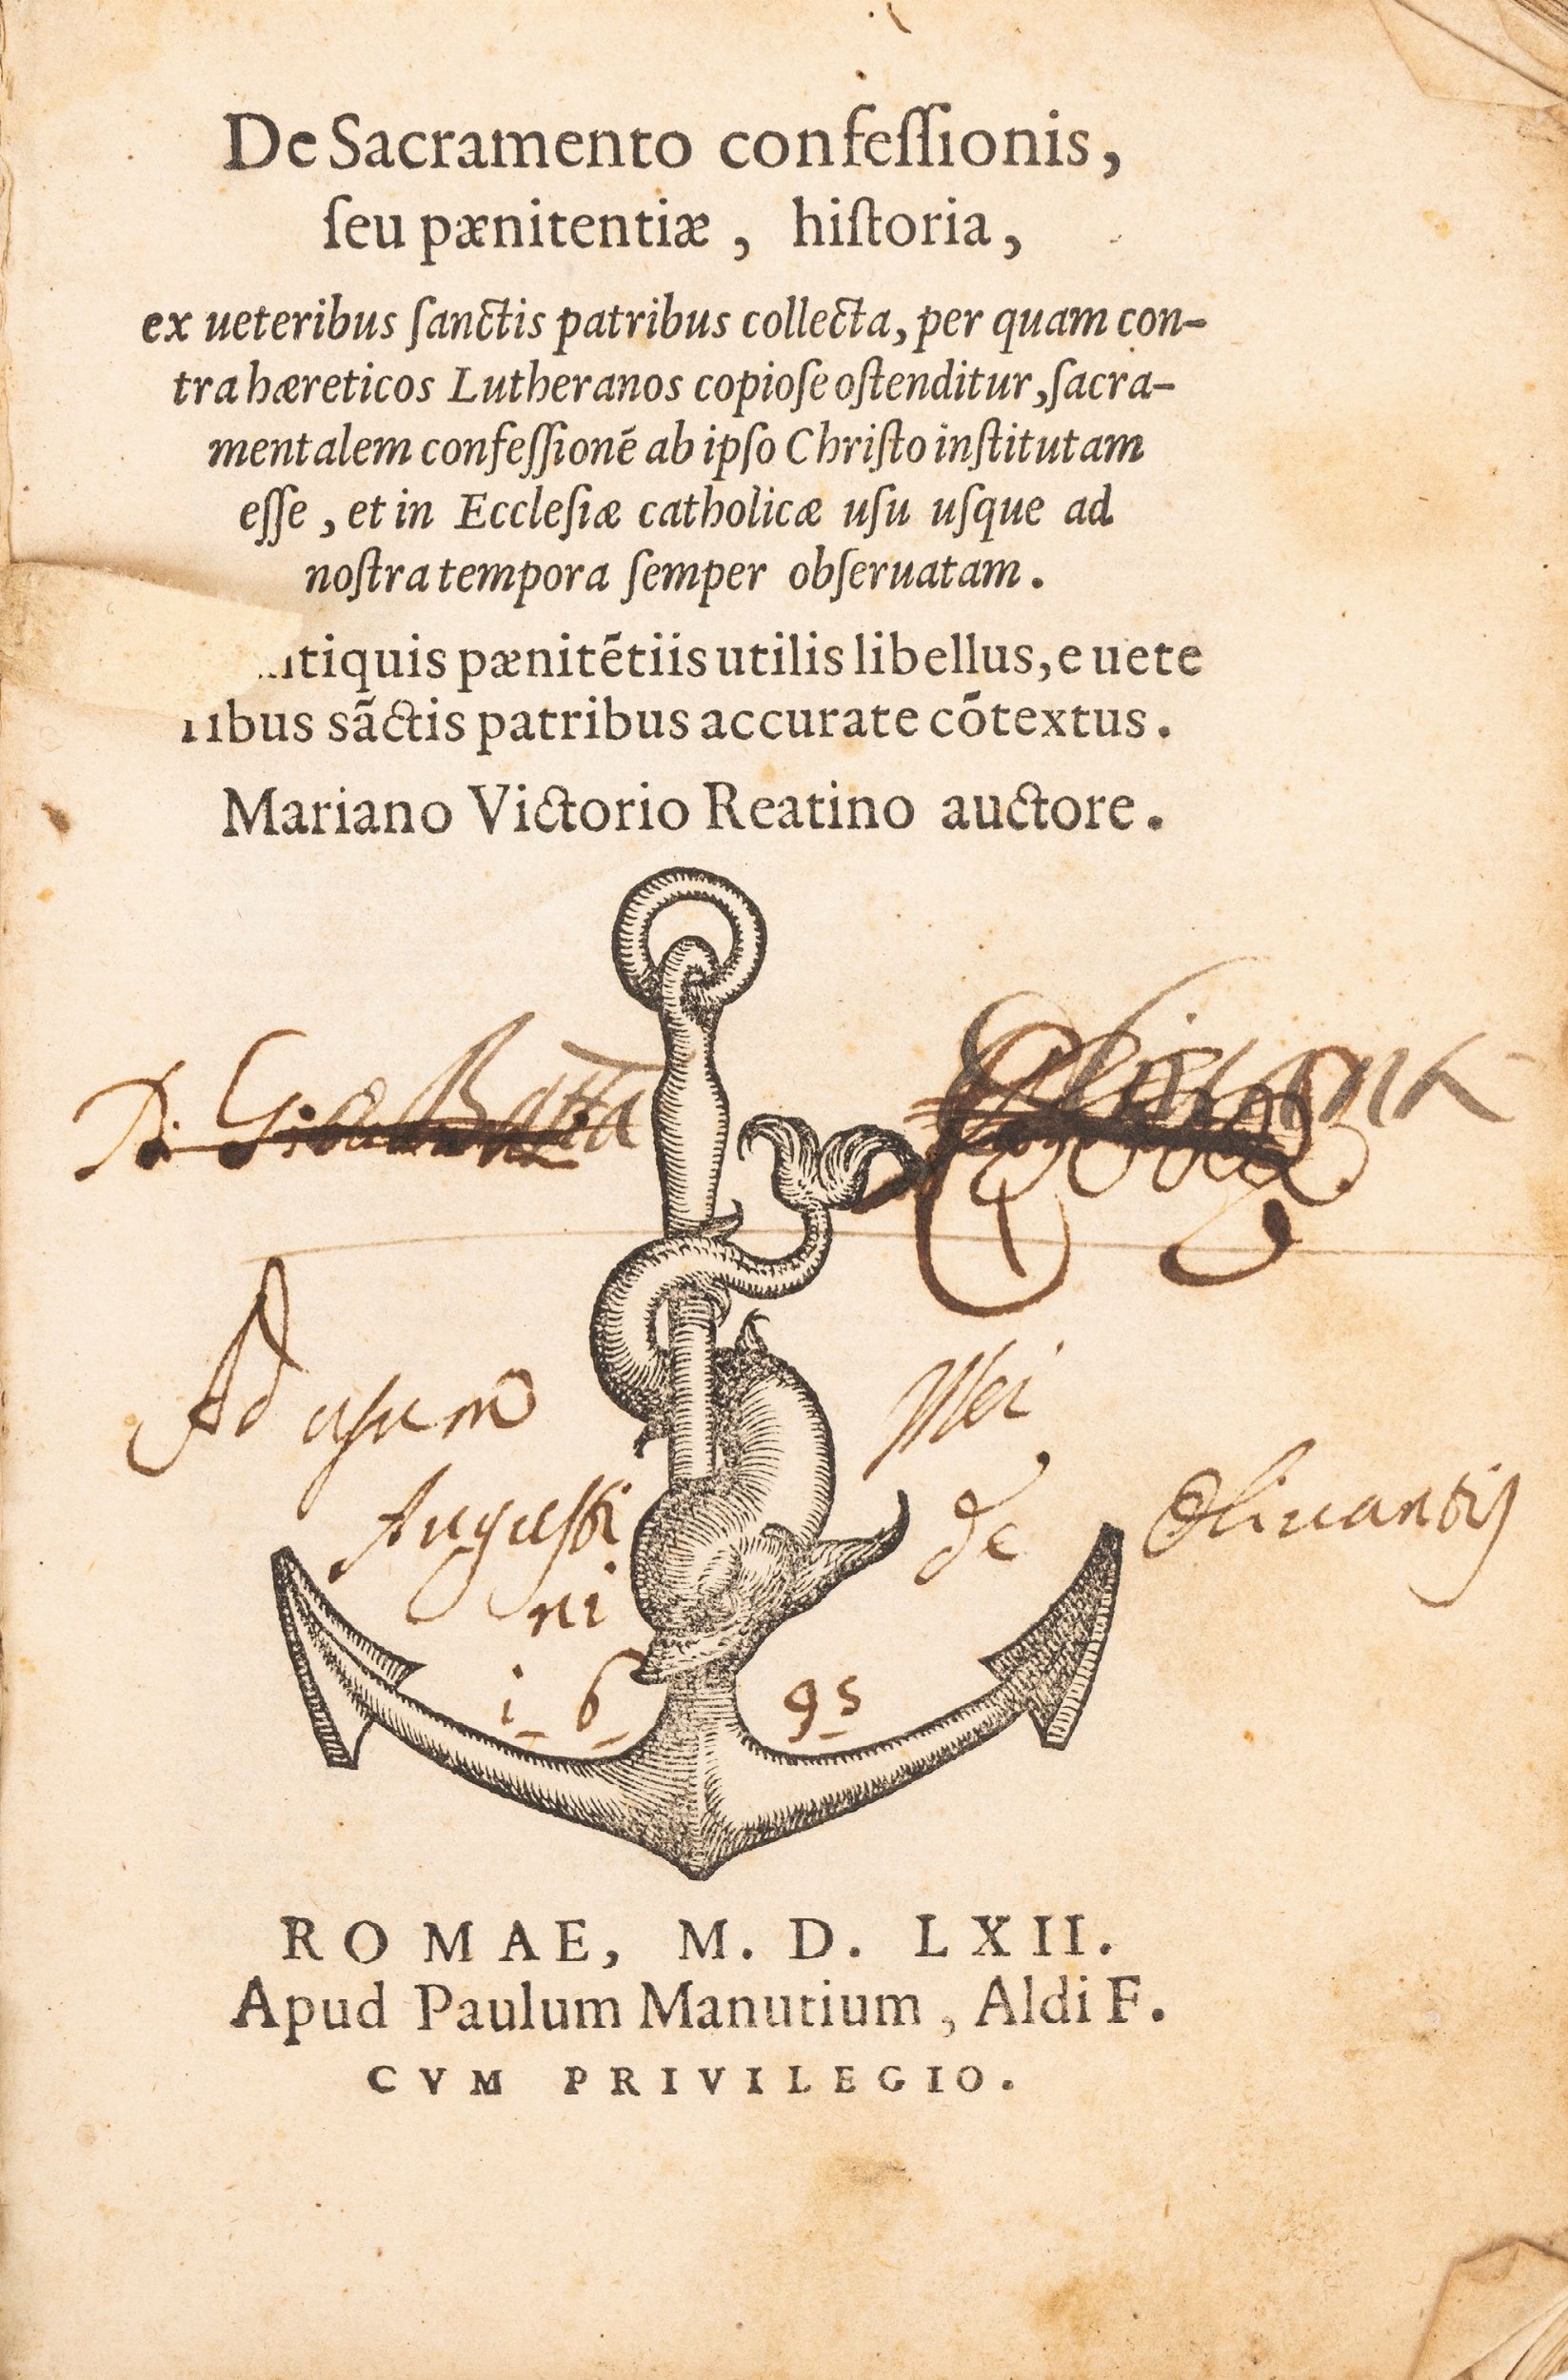 De Sacramento confeſſionis,
ſeu pænitentiæ, hiſtoria,
ex ueteribus ſanctis patribus collecta, per quam con-
tra hæreticos Lutheranos copioſe oſtenditur, ſacra-
mentalem confeſſionē ab ipſo Chriſto inſtitutam
eſſe, et in Eccleſiæ catholicæ uſu uſque ad
noſtra tempora ſemper obſeruatam.
tiquis pænitētiis utilis libellus, e uete
ibus sāctis patribus accurate cōtextus.
Mariano Victorio Reatino auctore.
D. Gio Batta
Ad usum Mei
Augusti de Oliuantij
ni
i6 95
ROMAE, M. D. LXII.
Apud Paulum Manutium, Aldi F.
CVM PRIVILEGIO.